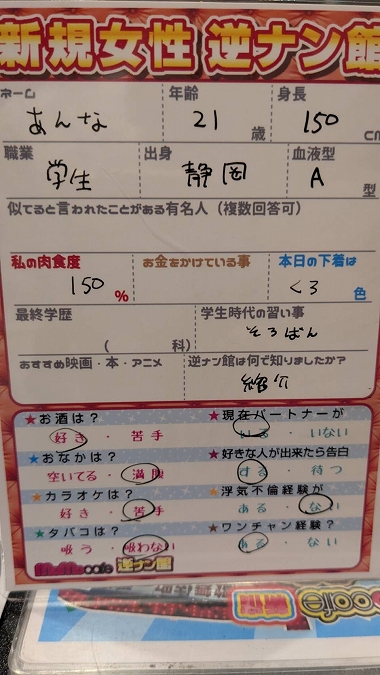 新規女性 逆ナン館
ネーム 年齢 身長
あんな 21歳 150cm
職業 出身 血液型
学生 静岡 A型
似てると言われたことがある有名人（複数回答可）
私の肉食度 お金をかけている事 本日の下着は
150% くろ色
最終学歴 学生時代の習い事
（ 科） そろばん
おすすめ映画・本・アニメ 逆ナン館は何で知りましたか?
紹介
★お酒は? ★現在パートナーが
好き・苦手 いる・いない
★おなかは? ★好きな人が出来たら告白
空いてる・満腹 する・待つ
★カラオケは? ★浮気不倫経験が
好き・苦手 ある・ない
★タバコは? ★ワンチャン経験?
吸う・吸わない ある・ない
cafe 逆ナン館